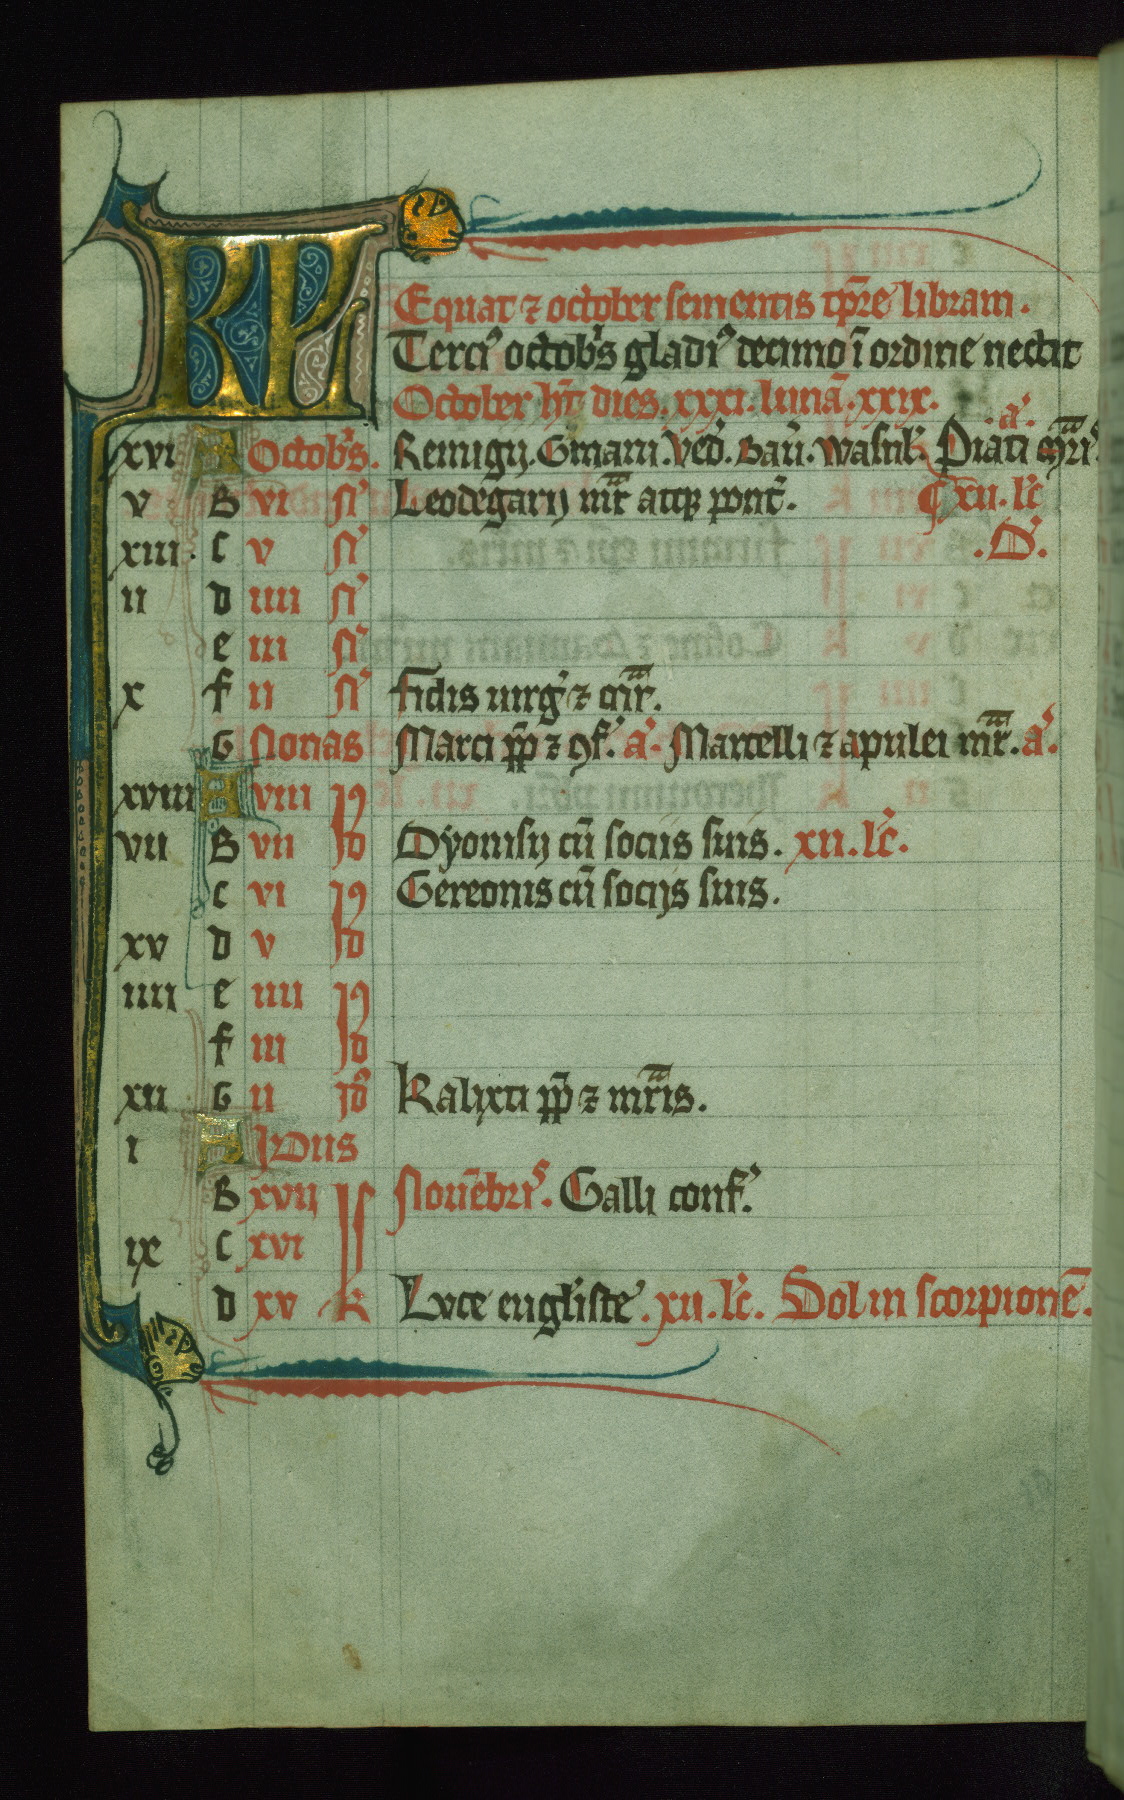 KL
Equat ⁊ october sementis tp̄re libram.
Terciꝰ octob's gladiꝰ decimo ī ordine nectit
October ht̄ dies. xxxi. lunā. xxix.
xvi A Octob's. Remigij. Gmani. Ved̄. Bau̅. Piati m̄ri'. .a'.
v B vi N' Leodegarij mr̄ atq; pont̄. xii. lc̄
xiii. C v N' .D'.
ii d iiii N'
e iii N'
x f ii N' Fidis uirg' ⁊ mr̄.
G Nonas Marci pp̄ ⁊ ꝯf'. a'. Marcelli ⁊ apulei mr̄. a'.
xviii A viii Id
vii B vii Id Dyonisij cū sociis suis. xii. lc̄.
c vi Id Gereonis cū socijs suis.
xv d v Id
iiii e iiii Id
f iii Id
xii G ii Id' Kalixti pp̄ ⁊ mr̄is.
i A Idus
B xvij K Nouēbris. Galli conf'.
ix C xvi K
d xv K Luce eugl'iste'. xii. lc̄. Sol in scorpionē.